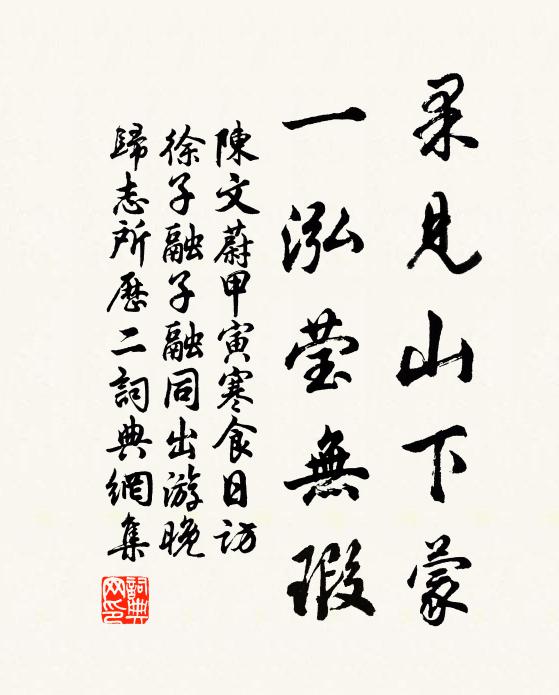 果見山下蒙
一泓莹無瑕
陳文蔚甲寅寒食日訪
徐子融子融同出游晚
歸志所歷二詞典網集
詞典網印